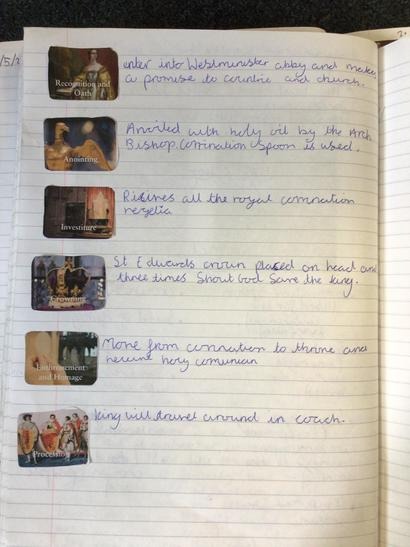 15/2
Recognition and
Oath
enter into Westminister abby and makes
a promise to countrie and church.
Anointing
Anoited with holy oil by the Arch
Bishop. Corrination Spoon is used.
Investiture
all the royal
regelia
Crowning
St Edwards crown placed on head and
three times Shout God Save the king.
Enthronement
and Homage
Move from to throne and
holy comunian
Procession
king will travel around in coach.